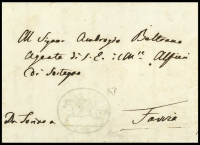 Al Sigr. Ambrogio Beltrami
Agente di S. E. il Mse. Alfieri
di Sostegno
Da Torino a Favria